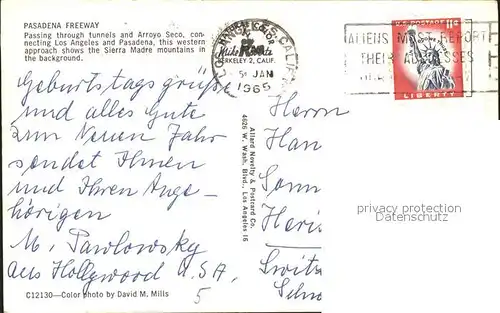 PASADENA FREEWAY
Passing through tunnels and Arroyo Seco, con-
necting Los Angeles and Pasadena, this western
approach shows the Sierra Madre mountains in
the background.
Geburtstags grüße
und alles Gute
zum Neuen Jahr
sendet Ihnen
und Ihren Ange-
hörigen
M. Pawlowsky
aus Hollywood USA,
C12130—Color photo by David M. Mills
5
Mike Roberts
BERKELEY 2, CALIF.
JAN
1965
Allard Novelty & Postcard Co.
4626 W. Wash. Blvd., Los Angeles 16
ALIENS MUST REPORT
THEIR ADDRESSES
U.S. POSTAGE 11¢
LIBERTY
Herrn
Han
Sonn
Heris
Switz
Schw
privacy protection
Datenschutz